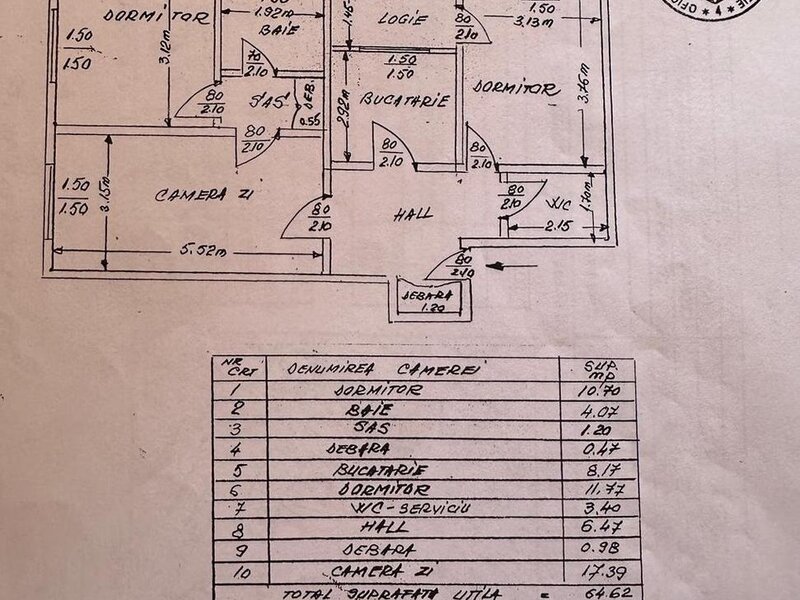 DORMITOR
1.50
1.50
3.12m
1.92m
BAIE
70
2.10
80
2.10
SAS
DEB.
0.55
80
2.10
1.45
LOGIE
80
2.10
1.50
3.13m
1.50
1.50
BUCATARIE
2.92m
80
2.10
DORMITOR
3.76m
80
2.10
1.50
1.50
3.15m
CAMERA ZI
5.52m
80
2.10
HALL
80
2.10
WC
1.70m
2.15
80
2.10
DEBARA
1.20
NR CRT DENUMIREA CAMEREI SUP. mp
1 DORMITOR 10.70
2 BAIE 4.07
3 SAS 1.20
4 DEBARA 0.47
5 BUCATARIE 8.17
6 DORMITOR 11.77
7 WC-SERVICIU 3.40
8 HALL 6.47
9 DEBARA 0.98
10 CAMERA ZI 17.39
TOTAL SUPRAFATA UTILA = 64.62